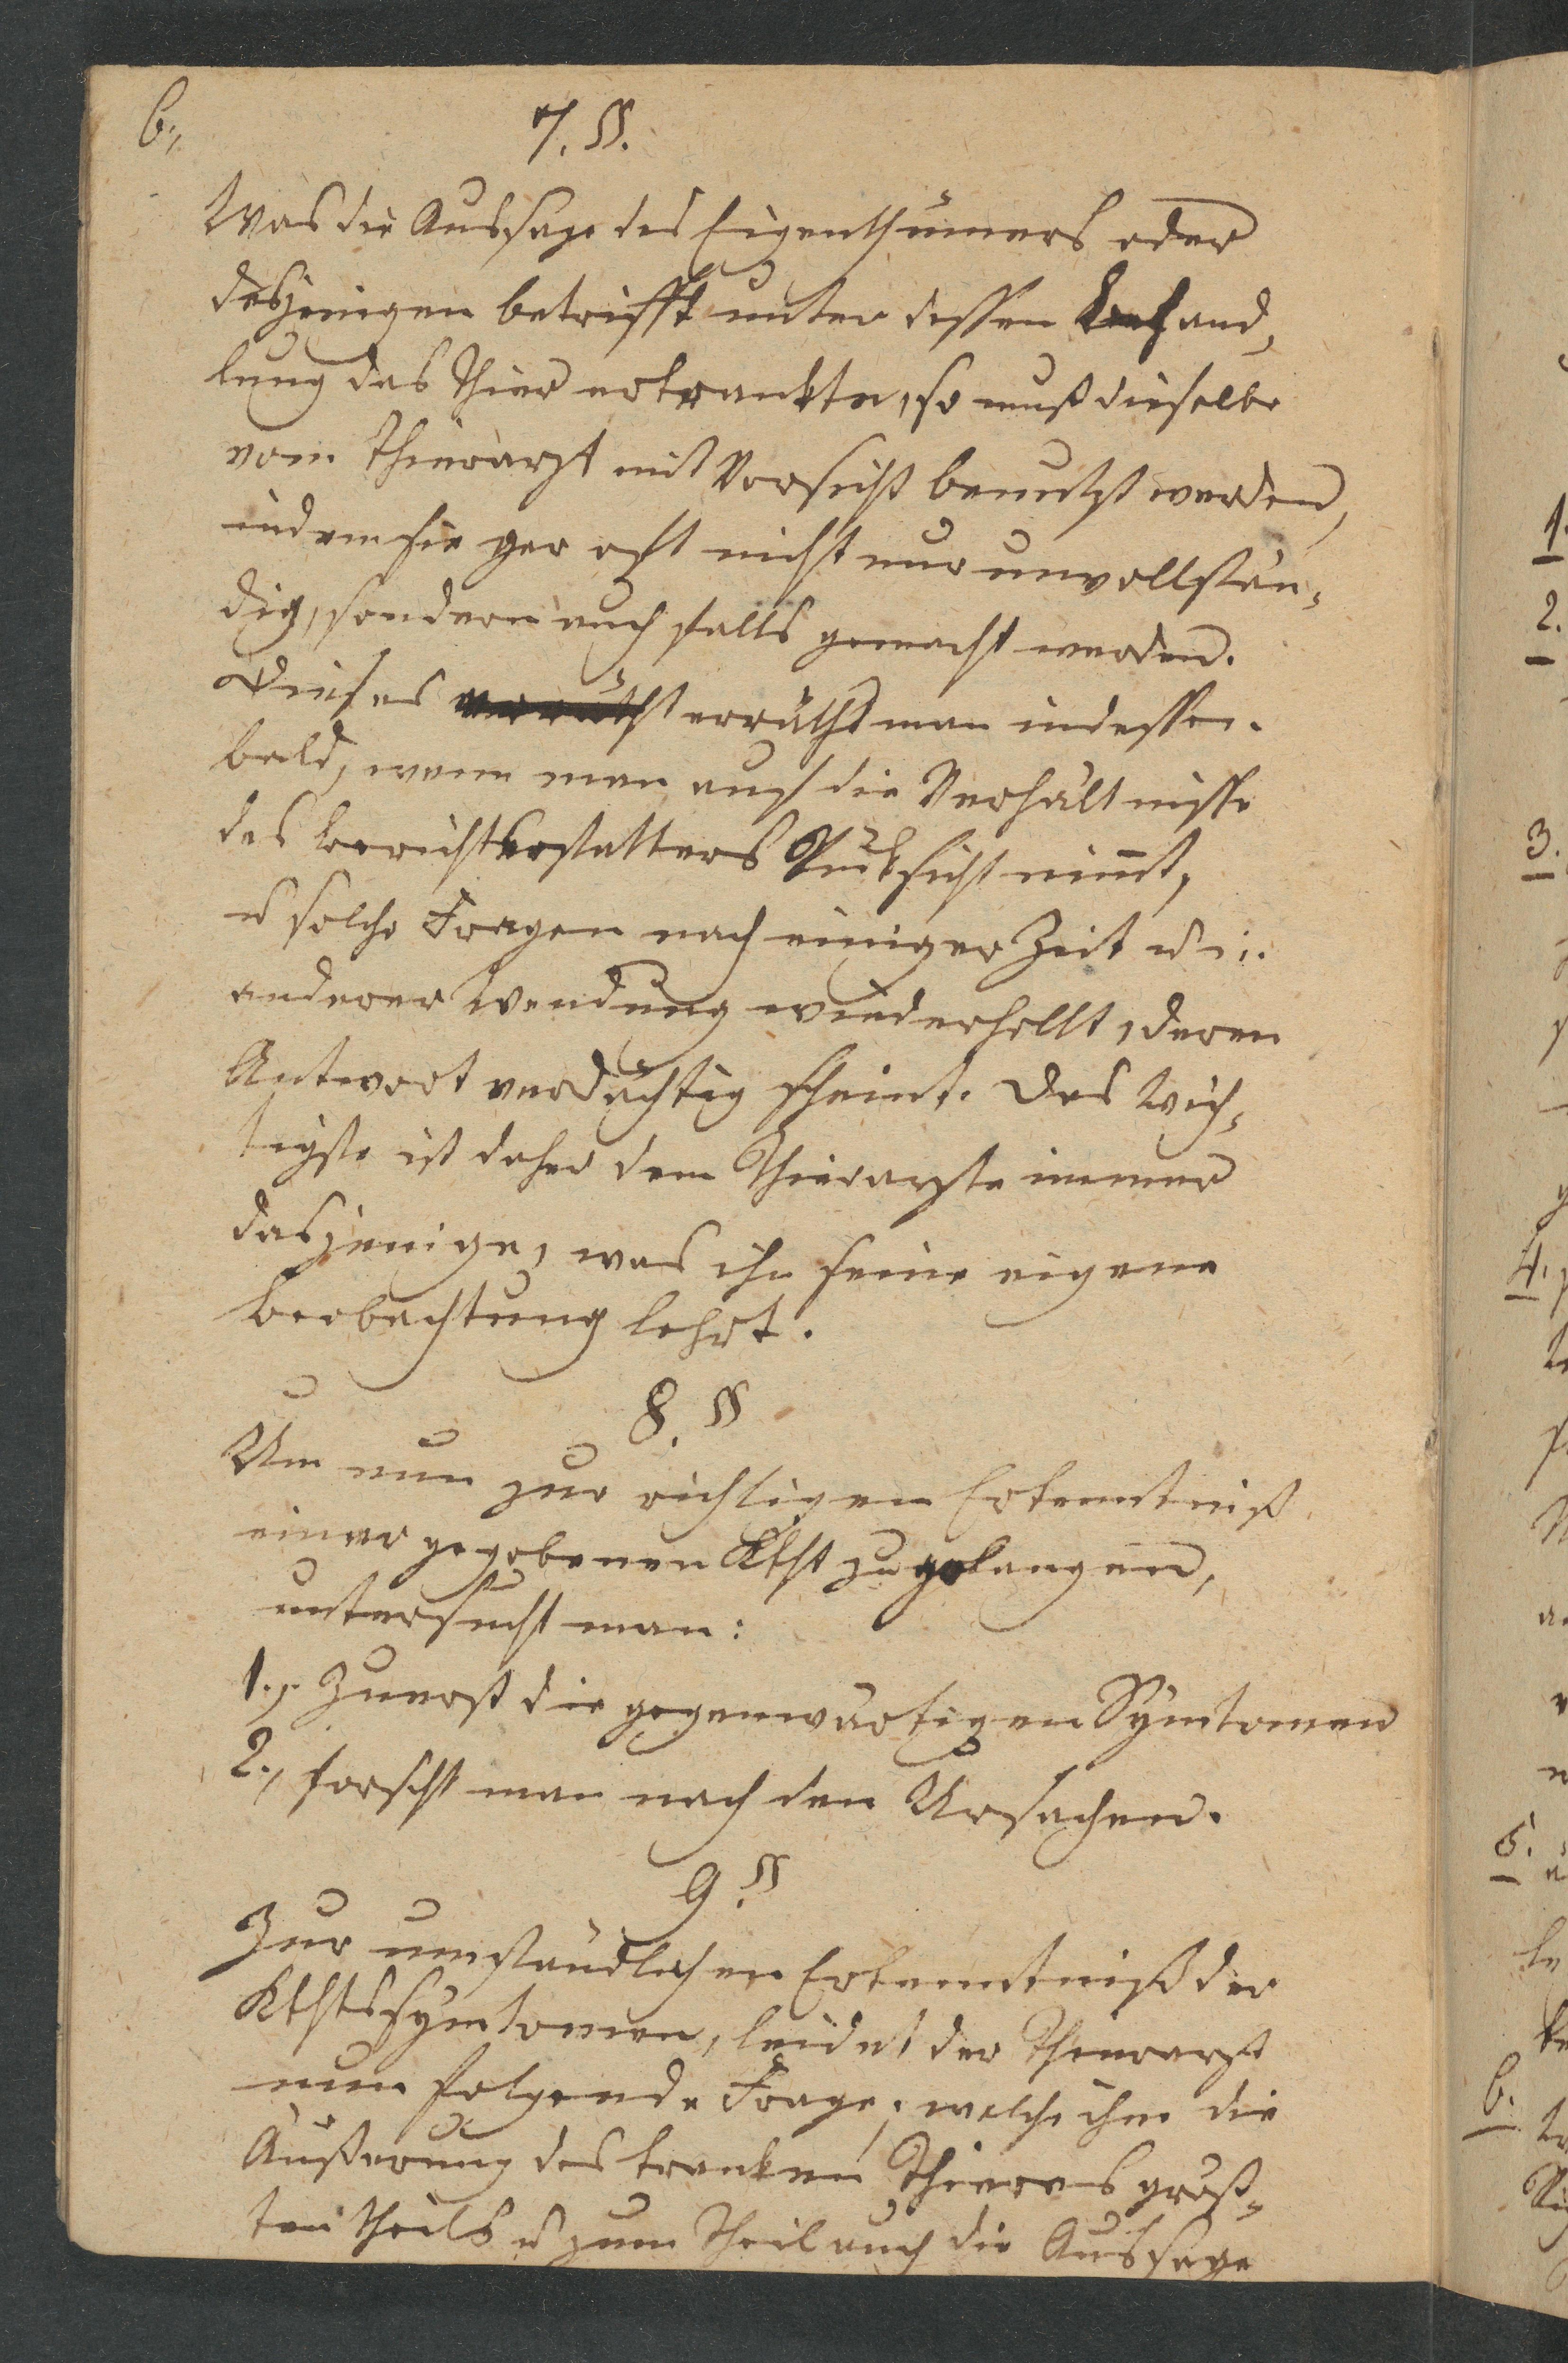 6.,
7. §§.
Was die Aussage des Eigenthümers oder
desjenigen betrifft unter dessen Behand,
lung das Thier erkrankte, so muß dieselbe
vom Thierarzt mit Vorsicht benutzt werden,
indem sie gar oft nicht nur unvollstän,
dig, sondern auch falls gemacht werden.
Dieses erräths man indessen.
bald, wenn man auch die Verhältnisse
des Berichterstatters Rüksicht nim̅t,
u solche Fragen nach einiger Zeit u i.
anderer Wendung wiederhollt, deren
Antwort verdächtig scheint. Das Wich,
tigste ist daher dem Thierarzte immer
dasjenige, was ihn seine eigene
Beobachtung lehrt.
8. §§
Um nun zur richtigen Erkenntniß
einer gegebenen Kkht zu gelangen,
untersucht man:
1., Zuerst die gegenwärtigen Symtomen
2., forscht man nach den Ursachen.
9. §§
Zur umständlichen Erkenntniß der
Kkhtssymtomen, leidet der Thierarzt
nun folgende Frage; welche ihm die
Äußerung des kranken Thieres gröst,
tentheils u zum Theil auch die Aussage
1.
2.
3.
4.
5.
6.